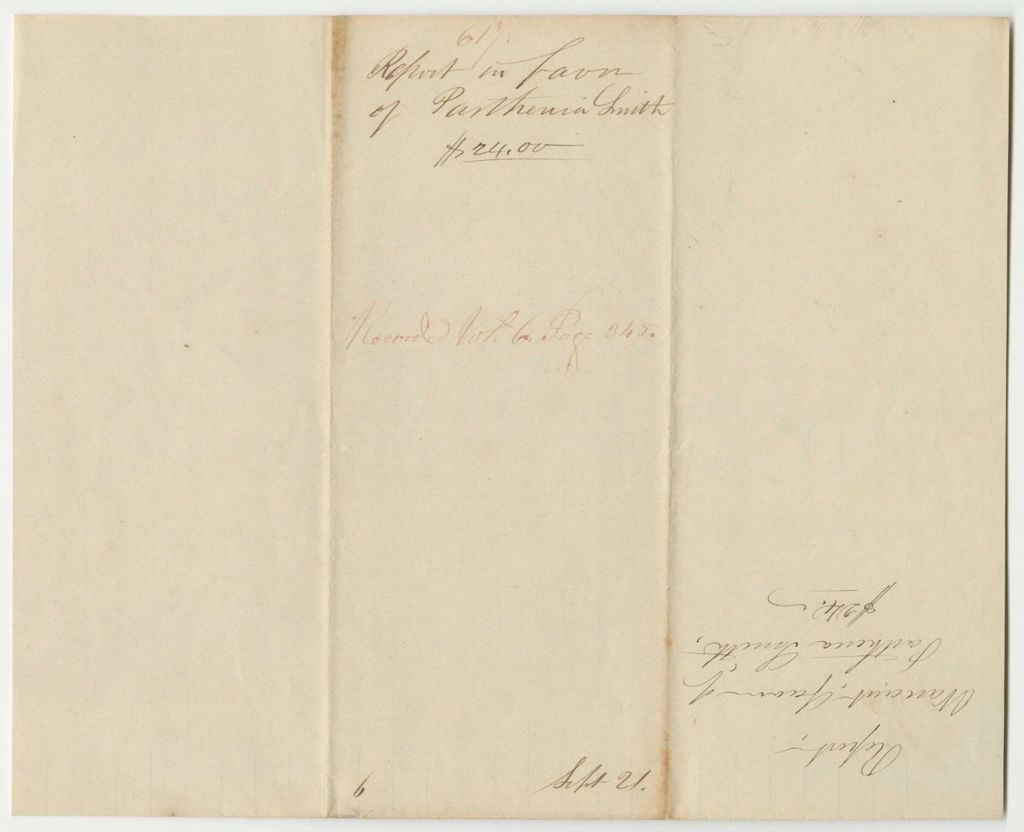 617.
Report in favor
of Parthenia Smith
$24.00
Recorded Vol. 6. Page 345.
6 Sept 21.
Report,
Warrant, favor of
Parthena Smith,
$24.